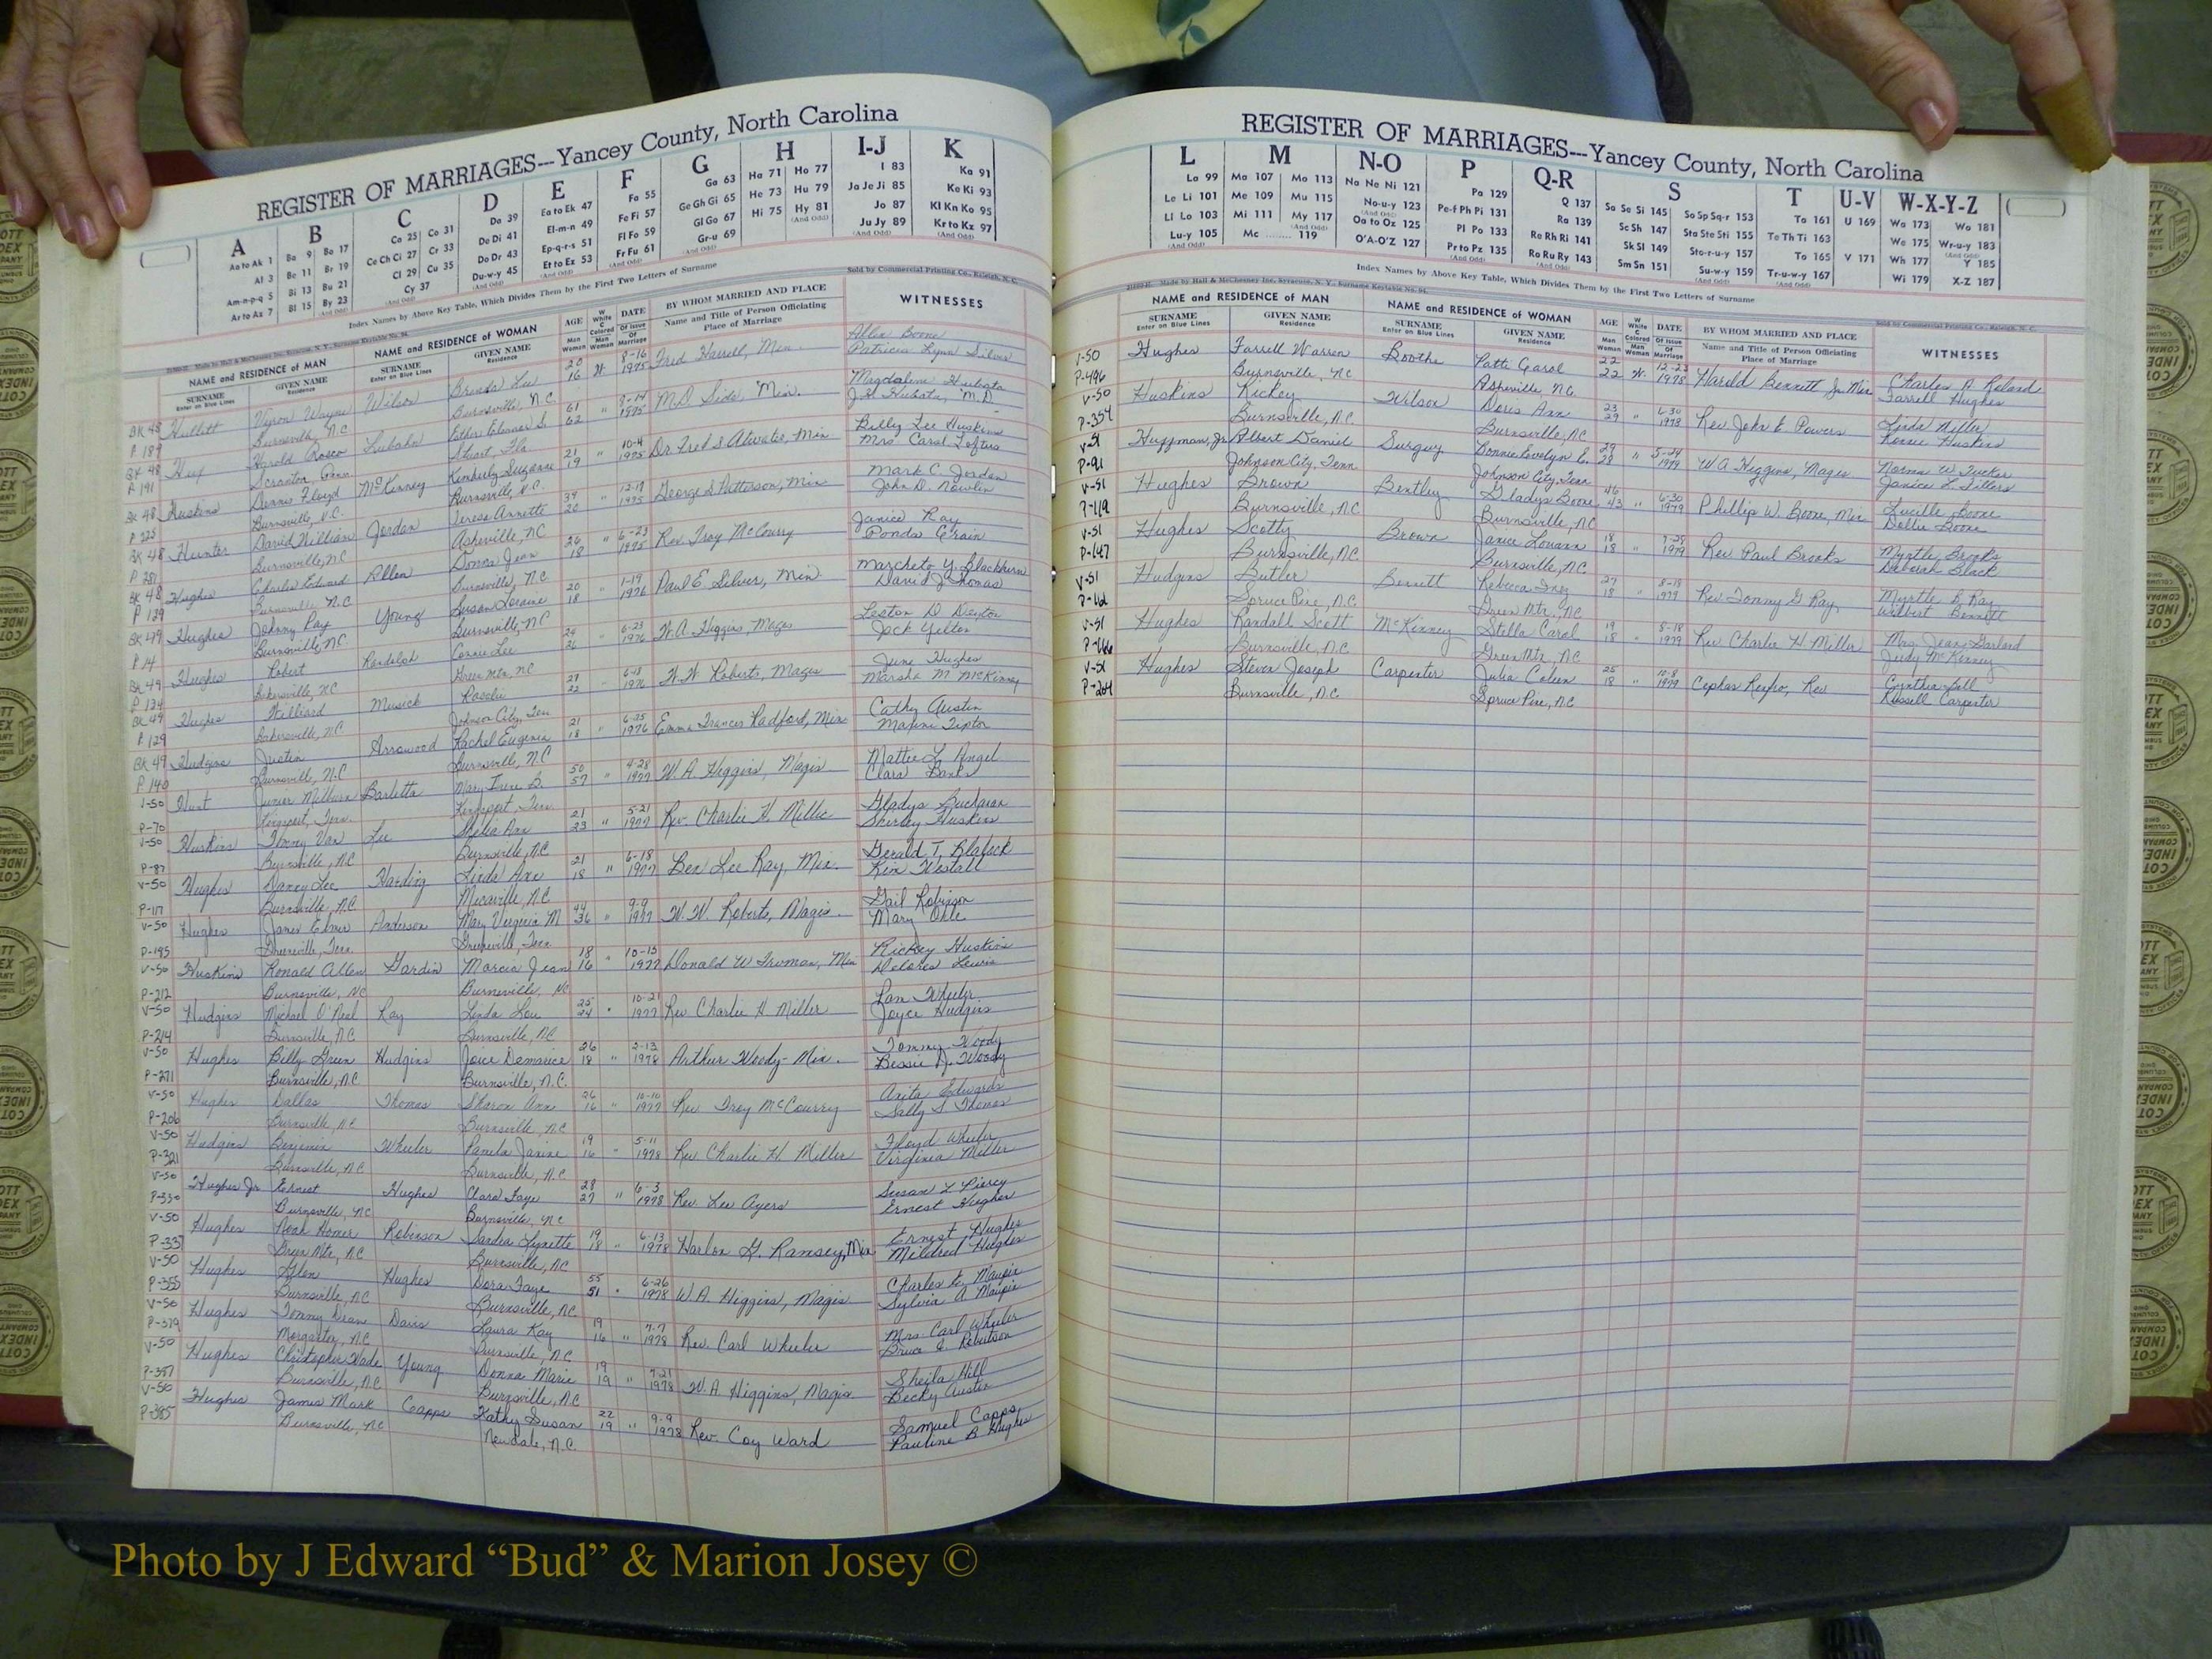 REGISTER OF MARRIAGES---Yancey County, North Carolina
A B C D E F G H I-J K
Aa to Ak 1
Al 3
Am-n-p-q 5
Ar to Az 7
Ba 9 Bo 17
Be 11 Br 19
Bi 13 Bu 21
Bl 15 By 23
(And Odd)
Ca 25 Co 31
Ce Ch Ci 27 Cr 33
Cl 29 Cu 35
Cy 37
(And Odd)
Da 39
De Di 41
Do Dr 43
Du-w-y 45
(And Odd)
Ea to Ek 47
El-m-n 49
Ep-q-r-s 51
Et to Ez 53
(And Odd)
Fa 55
Fe Fi 57
Fl Fo 59
Fr Fu 61
(And Odd)
Ga 63
Ge Gh Gi 65
Gl Go 67
Gr-u 69
(And Odd)
Ha 71 Ho 77
He 73 Hu 79
Hi 75 Hy 81
(And Odd)
I 83
Ja Je Ji 85
Jo 87
Ju Jy 89
(And Odd)
Ka 91
Ke Ki 93
Kl Kn Ko 95
Kr to Kz 97
(And Odd)
Index Names by Above Key Table, Which Divides Them by the First Two Letters of Surname
Sold by Commercial Printing Co., Raleigh, N. C.
NAME and RESIDENCE of MAN NAME and RESIDENCE of WOMAN AGE W White C Colored DATE BY WHOM MARRIED AND PLACE WITNESSES
SURNAME Enter on Blue Lines GIVEN NAME Residence SURNAME Enter on Blue Lines GIVEN NAME Residence Man Woman Man Woman Of Issue Of Marriage Name and Title of Person Officiating Place of Marriage
BK 48 Vyron Wayne Wilson Brenda Lee 20 W 8-16 Fred Harrell, Min. Boone
P 189 Burnsville, N.C. Burnsville, N.C. 16 1975 Patricia Lynn Silver
BK 48 Hux Harold Rosco Lubahn Esther Eleanor S. 61 " 8-14 M.D. Min. Magdalene Hubata
P 191 Scranton, Penn Stuart, Fla 62 1975 J. Hubata, M.D.
BK 48 Huskins Dennis Floyd McKinney Kimberly Suzanne 21 " 10-4 Dr Fred S Atwater, Min Billy Lee Huskins
P 223 Burnsville, N.C. Burnsville, N.C. 19 1975 Mrs Carol Loftus
BK 48 Hunter David William Jordan Teresa Annette 34 " 12-19 George S Patterson, Min Mark C. Jordan
P 281 Burnsville, NC Asheville, NC 20 1975 John D. Nowlin
BK 48 Hughes Charles Edward Allen Donna Jean 26 " 6-23 Rev Troy McCourry Janice Ray
P 139 Burnsville, N.C. Burnsville, N.C. 18 1975 Ponda Crain
BK 49 Hughes Johnny Ray Young Susan Loraine 20 " 1-19 Paul E Silver, Min Marcheta Y. Blackburn
P 14 Burnsville, N.C. Burnsville, NC 18 1976 David J Thomas
BK 49 Hughes Robert Randolph Connie Lee 24 " 6-23 W.A. Higgins, Mages Lector D Deyton
P 134 Bakersville, NC Green Mtn, NC 26 1976 Jack Yelton
BK 49 Hughes Williard Musick Rosalie 27 " 6-18 W.W. Roberts, Mages June Hughes
P 129 Bakersville, NC Johnson City, Ten 22 1976 Marsha M McKinney
BK 49 Hudgins Justin Arrowood Rachel Eugenia 21 " 6-25 Emma Frances Radford, Min Cathy Austin
P 140 Burnsville, N.C. Burnsville, N.C. 18 1976 Maxine Tipton
V-50 Hunt Junior Milburn Barletta Mary Irene B. 50 " 4-28 W.A. Higgins, Magis Mattie L. Angel
P-70 Kingsport, Tenn. Kingsport, Ten. 57 1977 Clara Banks
V-50 Huskins Tommy Van Lee Shelia Ann 21 " 5-21 Rev. Charlie H. Miller Gladys Buchanan
P-87 Burnsville, NC Burnsville, NC 23 1977 Shirley Huskins
V-50 Hughes Danny Lee Harding Linda Ann 21 " 6-18 Ben Lee Ray, Min. Gerald T. Blalock
P-117 Burnsville, N.C. Micaville, N.C. 18 1977 Kim Westall
V-50 Hughes James Elmer Anderson Mary Virginia M 44 " 9-9 W.W. Roberts, Magis. Gail Robinson
P-195 Greenville, Tenn. Greenville, Tenn 36 1977 Mary Ohle
V-50 Huskins Ronald Allen Gardin Marcia Jean 18 " 10-15 Donald W Truman, Min Rickey Huskins
P-212 Burnsville, NC Burnsville, NC 16 1977 Delores Lewis
V-50 Hudgins Michael O'Neal Ray Linda Lou 25 " 10-21 Rev. Charlie H Miller Pam Wheeler
P-214 Burnsville, N.C. Burnsville, NC 24 1977 Joyce Hudgins
V-50 Hughes Billy Green Hudgins Joice Damarice 26 " 2-13 Arthur Woody- Min. Tommy Woody
P-271 Burnsville, N.C. Burnsville, N.C. 18 1978 Bessie D. Woody
V-50 Hughes Dallas Thomas Sharon Ann 26 " 10-10 Rev Troy McCourry Anita Edwards
P-206 Burnsville, NC Burnsville, NC 16 1977 Sally S Thomas
V-50 Hudgins Benjamin Wheeler Pamela Janine 19 " 5-11 Rev Charlie H Miller Floyd Wheeler
P-321 Burnsville, NC Burnsville, N.C. 16 1978 Virginia Miller
V-50 Hughes Jr Ernest Hughes Clara Faye 28 " 6-3 Rev. Lee Ayers Susan L Piercy
P-330 Burnsville, NC Burnsville, NC 27 1978 Ernest Hughes
V-50 Hughes Noah Homer Robinson Sandra Lynette 19 " 6-13 Harlon G. Ramsey, Min Ernest Hughes
P-337 Green Mtn, NC Burnsville, NC 18 1978 Mildred Hughes
V-50 Hughes Glen Hughes Dora Faye 55 " 6-26 W.A. Higgins, Magis Charles E, Maupin
P-355 Burnsville, NC Burnsville, NC 51 1978 Sylvia A Maupin
V-50 Hughes Tommy Dean Davis Laura Kay 19 " 7-7 Rev. Carl Wheeler Mrs Carl Wheeler
P-379 Morganton, NC Burnsville, NC 16 1978 Bruce E. Robertson
V-50 Hughes Christopher Wade Young Donna Marie 19 " 7-21 W.A. Higgins, Magis Sheila Hill
P-357 Burnsville, N.C. Burnsville, NC 19 1978 Becky Austin
V-50 Hughes James Mark Capps Kathy Susan 22 " 9-9 Rev. Coy Ward Samuel Capps
P-385 Burnsville, NC Newdale, N.C. 19 1978 Pauline B Hughes
REGISTER OF MARRIAGES---Yancey County, North Carolina
L M N-O P Q-R S T U-V W-X-Y-Z
La 99
Le Li 101
Ll Lo 103
Lu-y 105
(And Odd)
Ma 107 Mo 113
Me 109 Mu 115
Mi 111 My 117
(And Odd)
Mc ........ 119
Na Ne Ni 121
No-u-y 123
(And Odd)
Oa to Oz 125
O'A-O'Z 127
Pa 129
Pe-f Ph Pi 131
Pl Po 133
Pr to Pz 135
(And Odd)
Q 137
Ra 139
Re Rh Ri 141
Ro Ru Ry 143
(And Odd)
Sa Se Si 145 So Sp Sq-r 153
Sc Sh 147 Sta Ste Sti 155
Sk Sl 149 Sto-r-u-y 157
Sm Sn 151 Su-w-y 159
(And Odd)
Ta 161
Te Th Ti 163
To 165
Tr-u-w-y 167
(And Odd)
U 169
V 171
Wa 173 Wo 181
We 175 Wr-u-y 183
(And Odd)
Wh 177 Y 185
Wi 179 X-Z 187
Index Names by Above Key Table, Which Divides Them by the First Two Letters of Surname
Made by Hall & McChesney Inc. Syracuse, N. Y., Surname Keytable No. 94.
Sold by Commercial Printing Co., Raleigh, N. C.
NAME and RESIDENCE of MAN NAME and RESIDENCE of WOMAN AGE W White C Colored DATE BY WHOM MARRIED AND PLACE WITNESSES
SURNAME Enter on Blue Lines GIVEN NAME Residence SURNAME Enter on Blue Lines GIVEN NAME Residence Man Woman Man Woman Of Issue Of Marriage Name and Title of Person Officiating Place of Marriage
V-50 Hughes Farrell Warren Boothe Patti Carol 22 W. 12-23 Harold Bennett Jr Min Charles A Roland
P-496 Burnsville, NC Asheville, NC 22 1978 Farrell Hughes
V-50 Huskins Rickey Wilson Doris Ann 23 " 6-30 Rev John E Powers Linda Miller
P-354 Burnsville, N.C. Burnsville, NC 29 1978 Ronnie Huskins
V-51 Huffman, Jr Albert Daniel Surguy Bonnie Evelyn E. 29 " 5-24 W A Higgins, Magis Norma W Tucker
P-91 Johnson City, Tenn Johnson City, Tenn 28 1979 Janice L. Sillers
V-51 Hughes Brown Bentley Gladys Boone 46 " 6-30 Phillip W. Boone, Min Lucille Boone
P-119 Burnsville, N.C. Burnsville, NC 43 1979 Dollie Boone
V-51 Hughes Scotty Brown Janice Louann 18 " 7-28 Rev Paul Brooks Myrtle Brooks
P-147 Burnsville, N.C. Burnsville, N.C. 18 1979 Deborah Black
V-51 Hudgins Butler Bennett Rebecca Inez 27 " 8-13 Rev. Tommy G Ray Myrtle B Ray
P-162 Spruce Pine, N.C. Green Mtn, NC 18 1979 Wilbert Bennett
V-51 Hughes Randall Scott McKinney Stella Carol 19 " 8-18 Rev Charlie H Miller Mary Jean Garland
P-166 Burnsville, N.C. Green Mtn, NC 18 1979 Judy McKinney
V-51 Hughes Steven Joseph Carpenter Julia Colen 25 " 10-8 Cephas Renfro, Rev Cynthia Hill
P-204 Burnsville, N.C. Spruce Pine, NC 18 1979 Russell Carpenter
Photo by J Edward “Bud” & Marion Josey ©